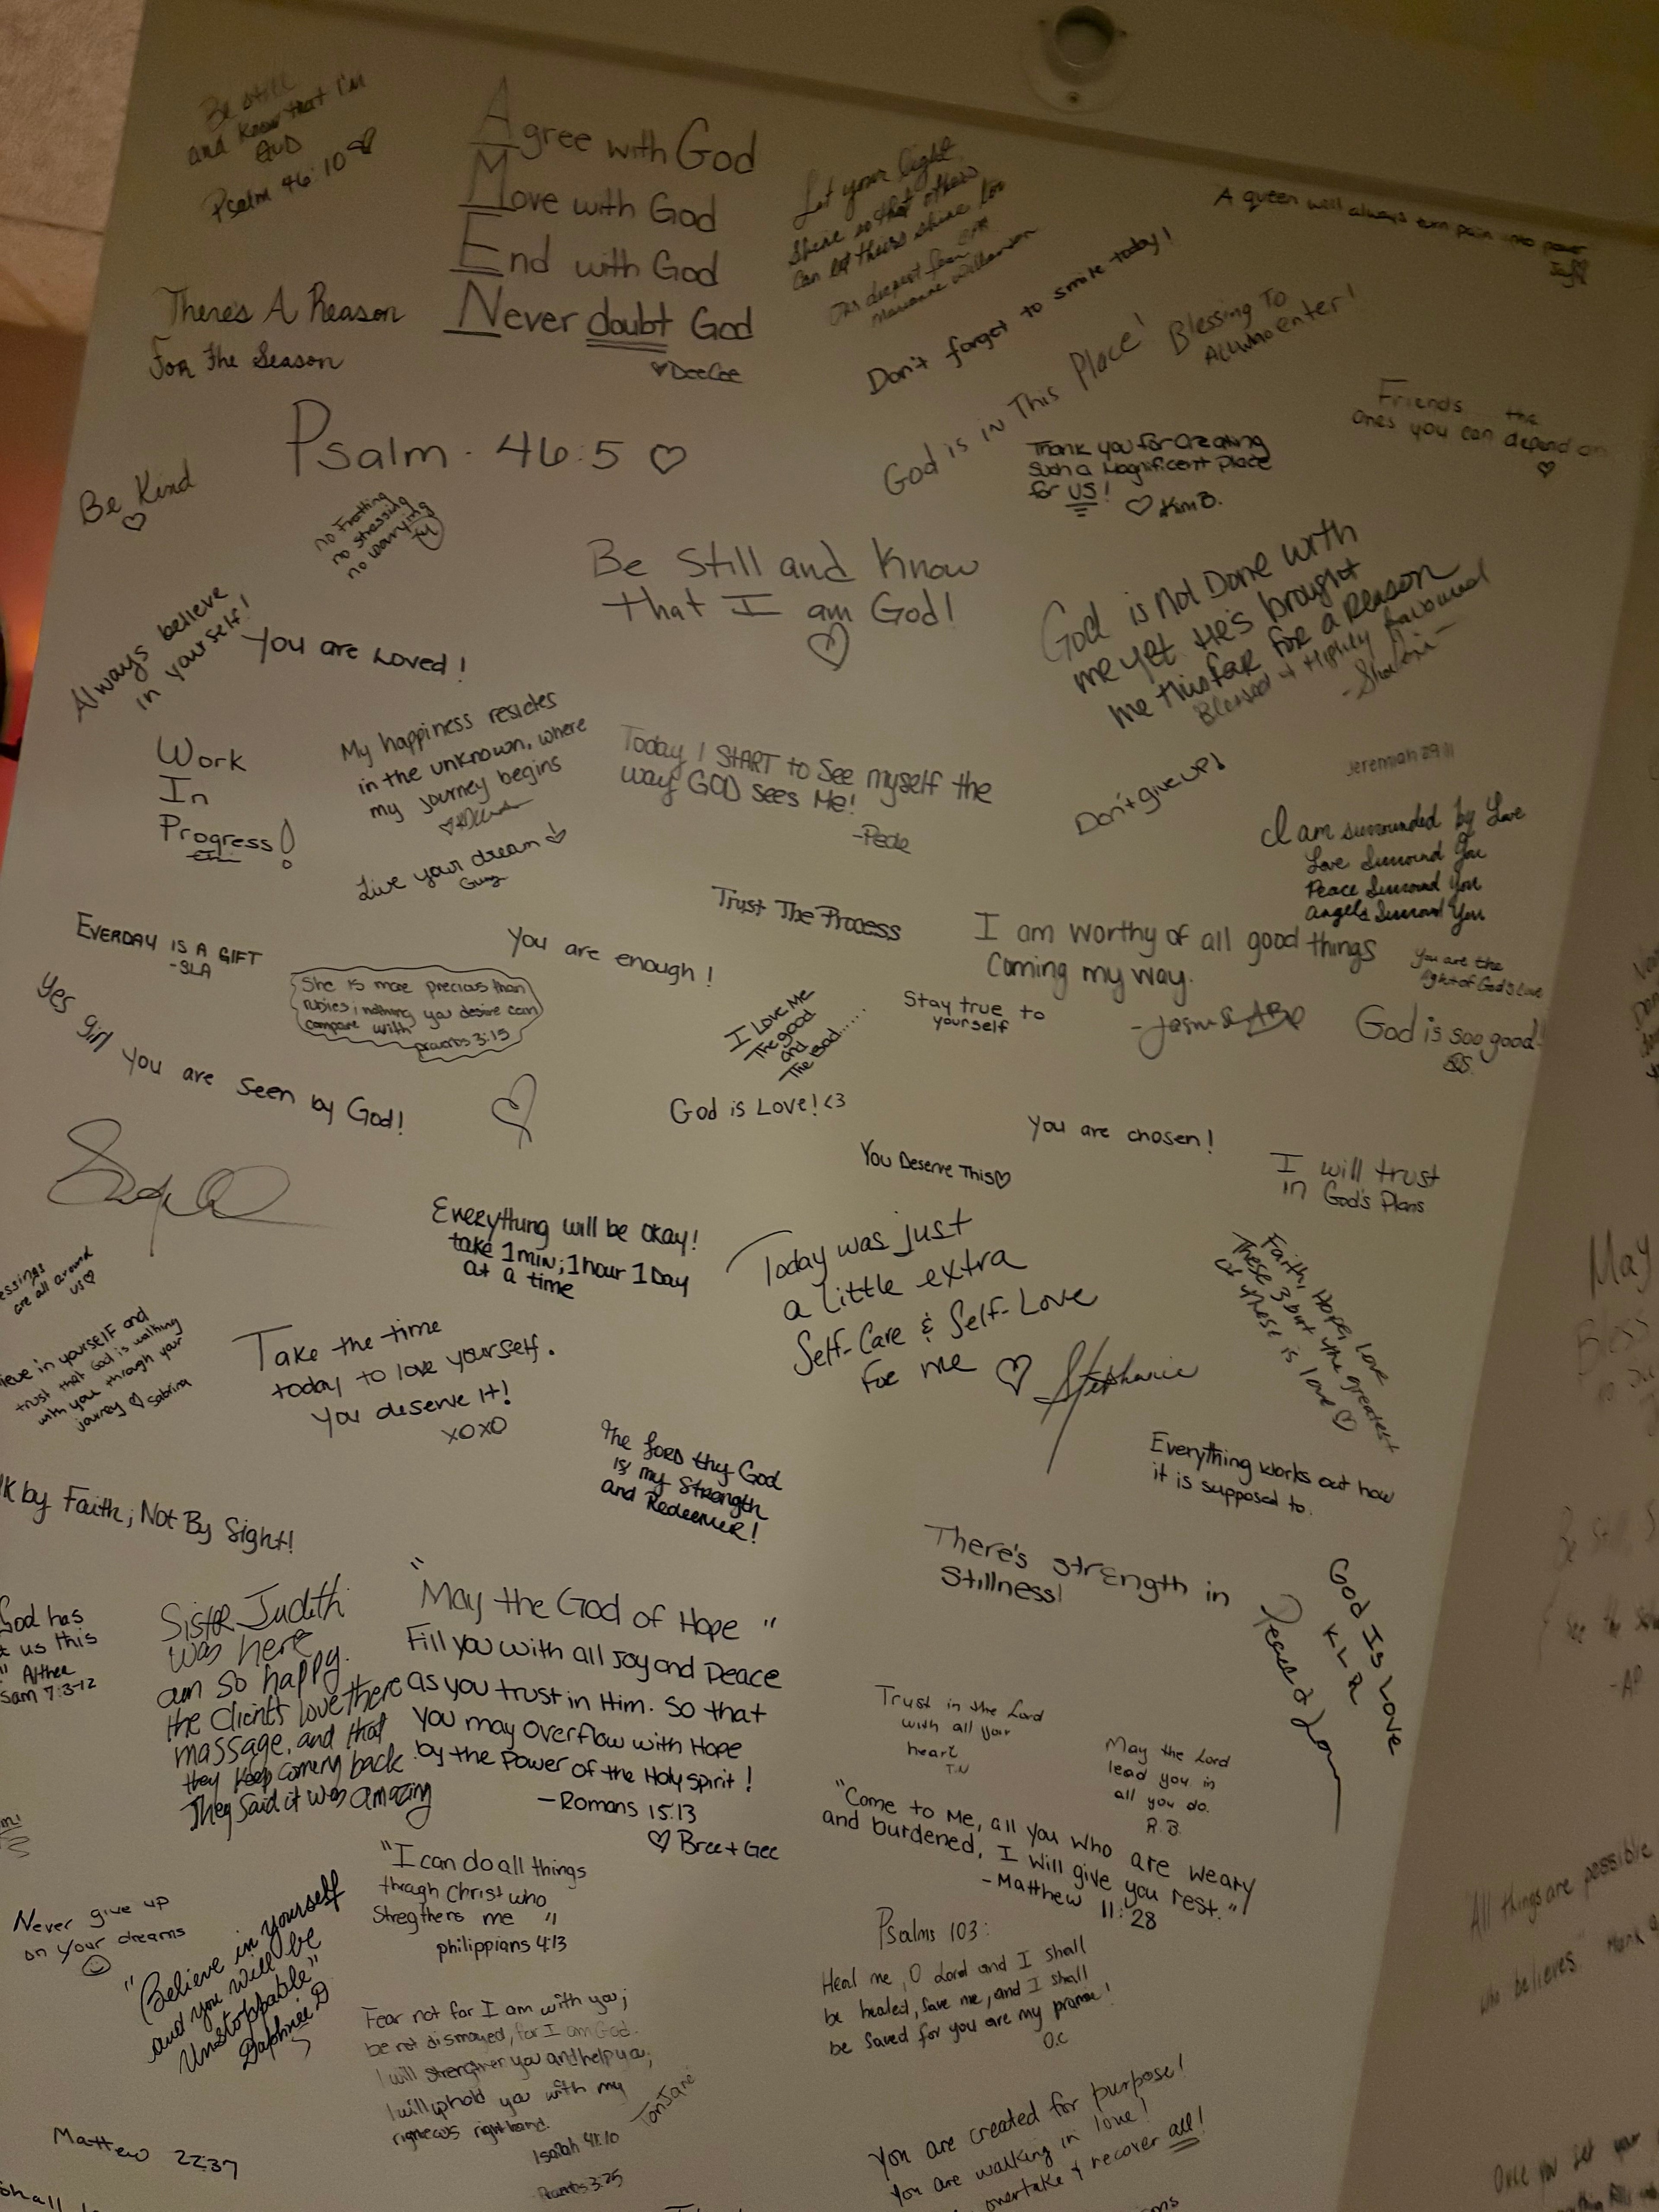 Be Still
and know that I'm
GOD
Psalm 46:10
Agree with God
Move with God
End with God
Never doubt God
DeeCee
Let your light
shine so that others
can let theirs shine too
Our deepest fear
Marianne Williamson
A queen will always turn pain into power
Don't forget to smile today!
There's A Reason
For The Season
God is in This Place! Blessing To
All who enter!
Friends the
ones you can depend on
Psalm. 46:5
Thank you for creating
such a Magnificent place
for US!
Kim B.
Be Kind
no Fretting
no stressing
no worrying
Be Still and Know
that I am God!
God is Not Done with
me yet. He's brought
me this far for a Reason
Blessed & Highly Favoured
Always believe
in yourself!
You are Loved!
Work
In
Progress!
My happiness resides
in the unknown, where
my journey begins
Today I START to See myself the
way GOD sees Me!
Don't give up!
Jeremiah 29:11
Live your dream
I am surrounded by Love
Love Surround You
Peace Surround You
Angels Surround You
Trust The Process
EVERDAY IS A GIFT
-SLA
You are enough!
I am worthy of all good things
Coming my way.
You are the
light of God's Love
She is more precious than
rubies; nothing you desire can
compare with
proverbs 3:15
I Love Me
The good
and
The Bad.....
Stay true to
yourself
God is soo good!
Yes girl you are seen by God!
God is Love! <3
You are chosen!
You Deserve This
I will trust
in God's Plans
Everything will be okay!
take 1 min; 1 hour 1 Day
at a time
Today was just
a little extra
Self-Care & Self-Love
For me
Stephanie
Faith, Hope, Love
These 3 but the greatest
of these is love
are all around
us
in yourself and
trust that God is walking
with you through your
journey Sabrina
Take the time
today to love yourself.
You deserve it!
XOXO
The LORD thy God
is my Strength
and Redeemer!
Everything works out how
it is supposed to.
by Faith; Not By Sight!
There's strength in
Stillness!
God Is Love
KLR
God has
us this
Althea
Sam 7:3-12
Sister Judith
was here
am so happy.
the clients love there
massage, and that
they keep coming back
They Said it was amazing
"May the God of Hope"
Fill you with all Joy and Peace
as you trust in Him. So that
you may overflow with Hope
by the Power of the Holy Spirit!
-Romans 15:13
Bree + Gee
Trust in the Lord
with all your
heart
T.N
May the Lord
lead you in
all you do.
R.B.
"Come to Me, all you who are weary
and burdened, I will give you rest."
-Matthew 11:28
"I can do all things
through Christ who
Stregthens me"
philippians 4:13
Never give up
on your dreams
"Believe in yourself
and you will be
Unstoppable"
Psalms 103:
Heal me, O Lord and I shall
be healed, save me, and I shall
be saved for you are my praise!
O.C
Fear not for I am with you;
be not dismayed, for I am God.
I will strengthen you and help you;
I will uphold you with my
righteous right hand.
Isaiah 41:10
Matthew 22:37
You are created for purpose!
You are walking in love!
overtake & recover all!
May
Bless
Be Still
"All things are possible
who believes." Mark
Once you set your